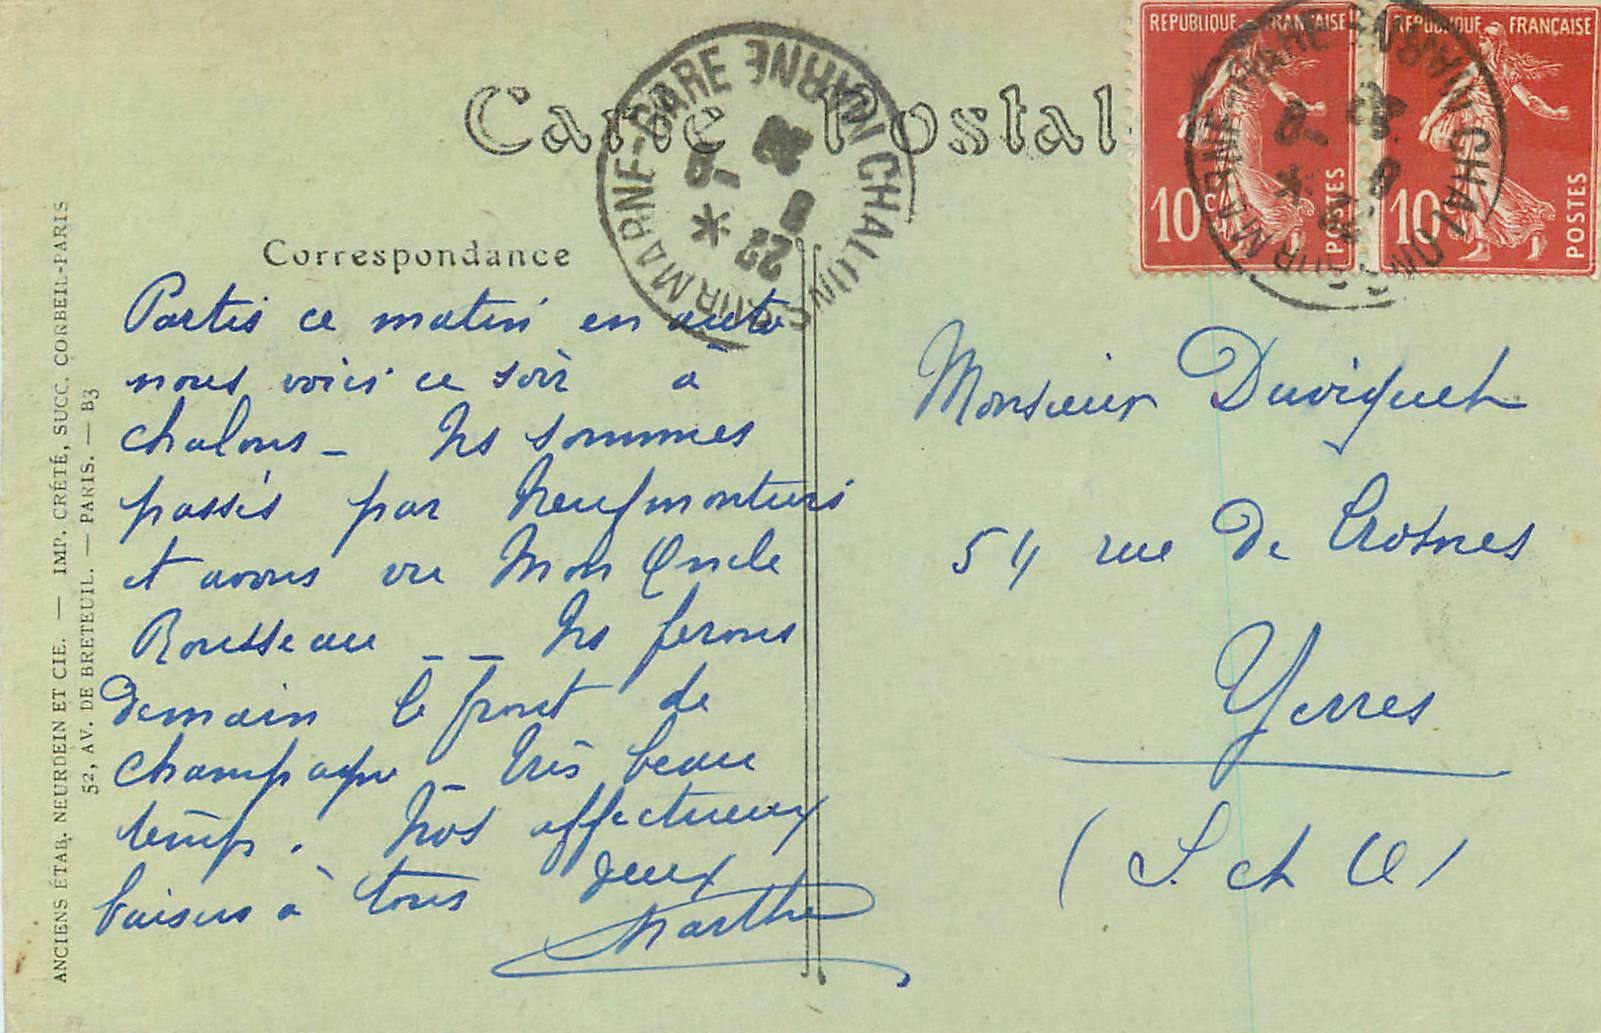 Carte Postal
REPUBLIQUE FRANÇAISE
10 c POSTES
REPUBLIQUE FRANÇAISE
10 POSTES
CHALONS SUR MARNE-GARE MARNE
22
CHALONS SUR MARNE-GARE MARNE
Correspondance
Partis ce matin en auto
nous voici ce soir à
chalons _ Ns sommes
passés par Neufmontiers
et avons vu Mon Oncle
Rousseau _ _ Ns ferons
demain le front de
champagne _ très beau
temps. Nos affectueux
baisers à tous deux
Marthe
Monsieur Duviquet
54 rue De Crosnes
Yerres
(S. et O)
ANCIENS ÉTAB. NEURDEIN ET CIE. — IMP. CRÉTÉ, SUCC. CORBEIL-PARIS
52, AV. DE BRETEUIL. — PARIS. — B3